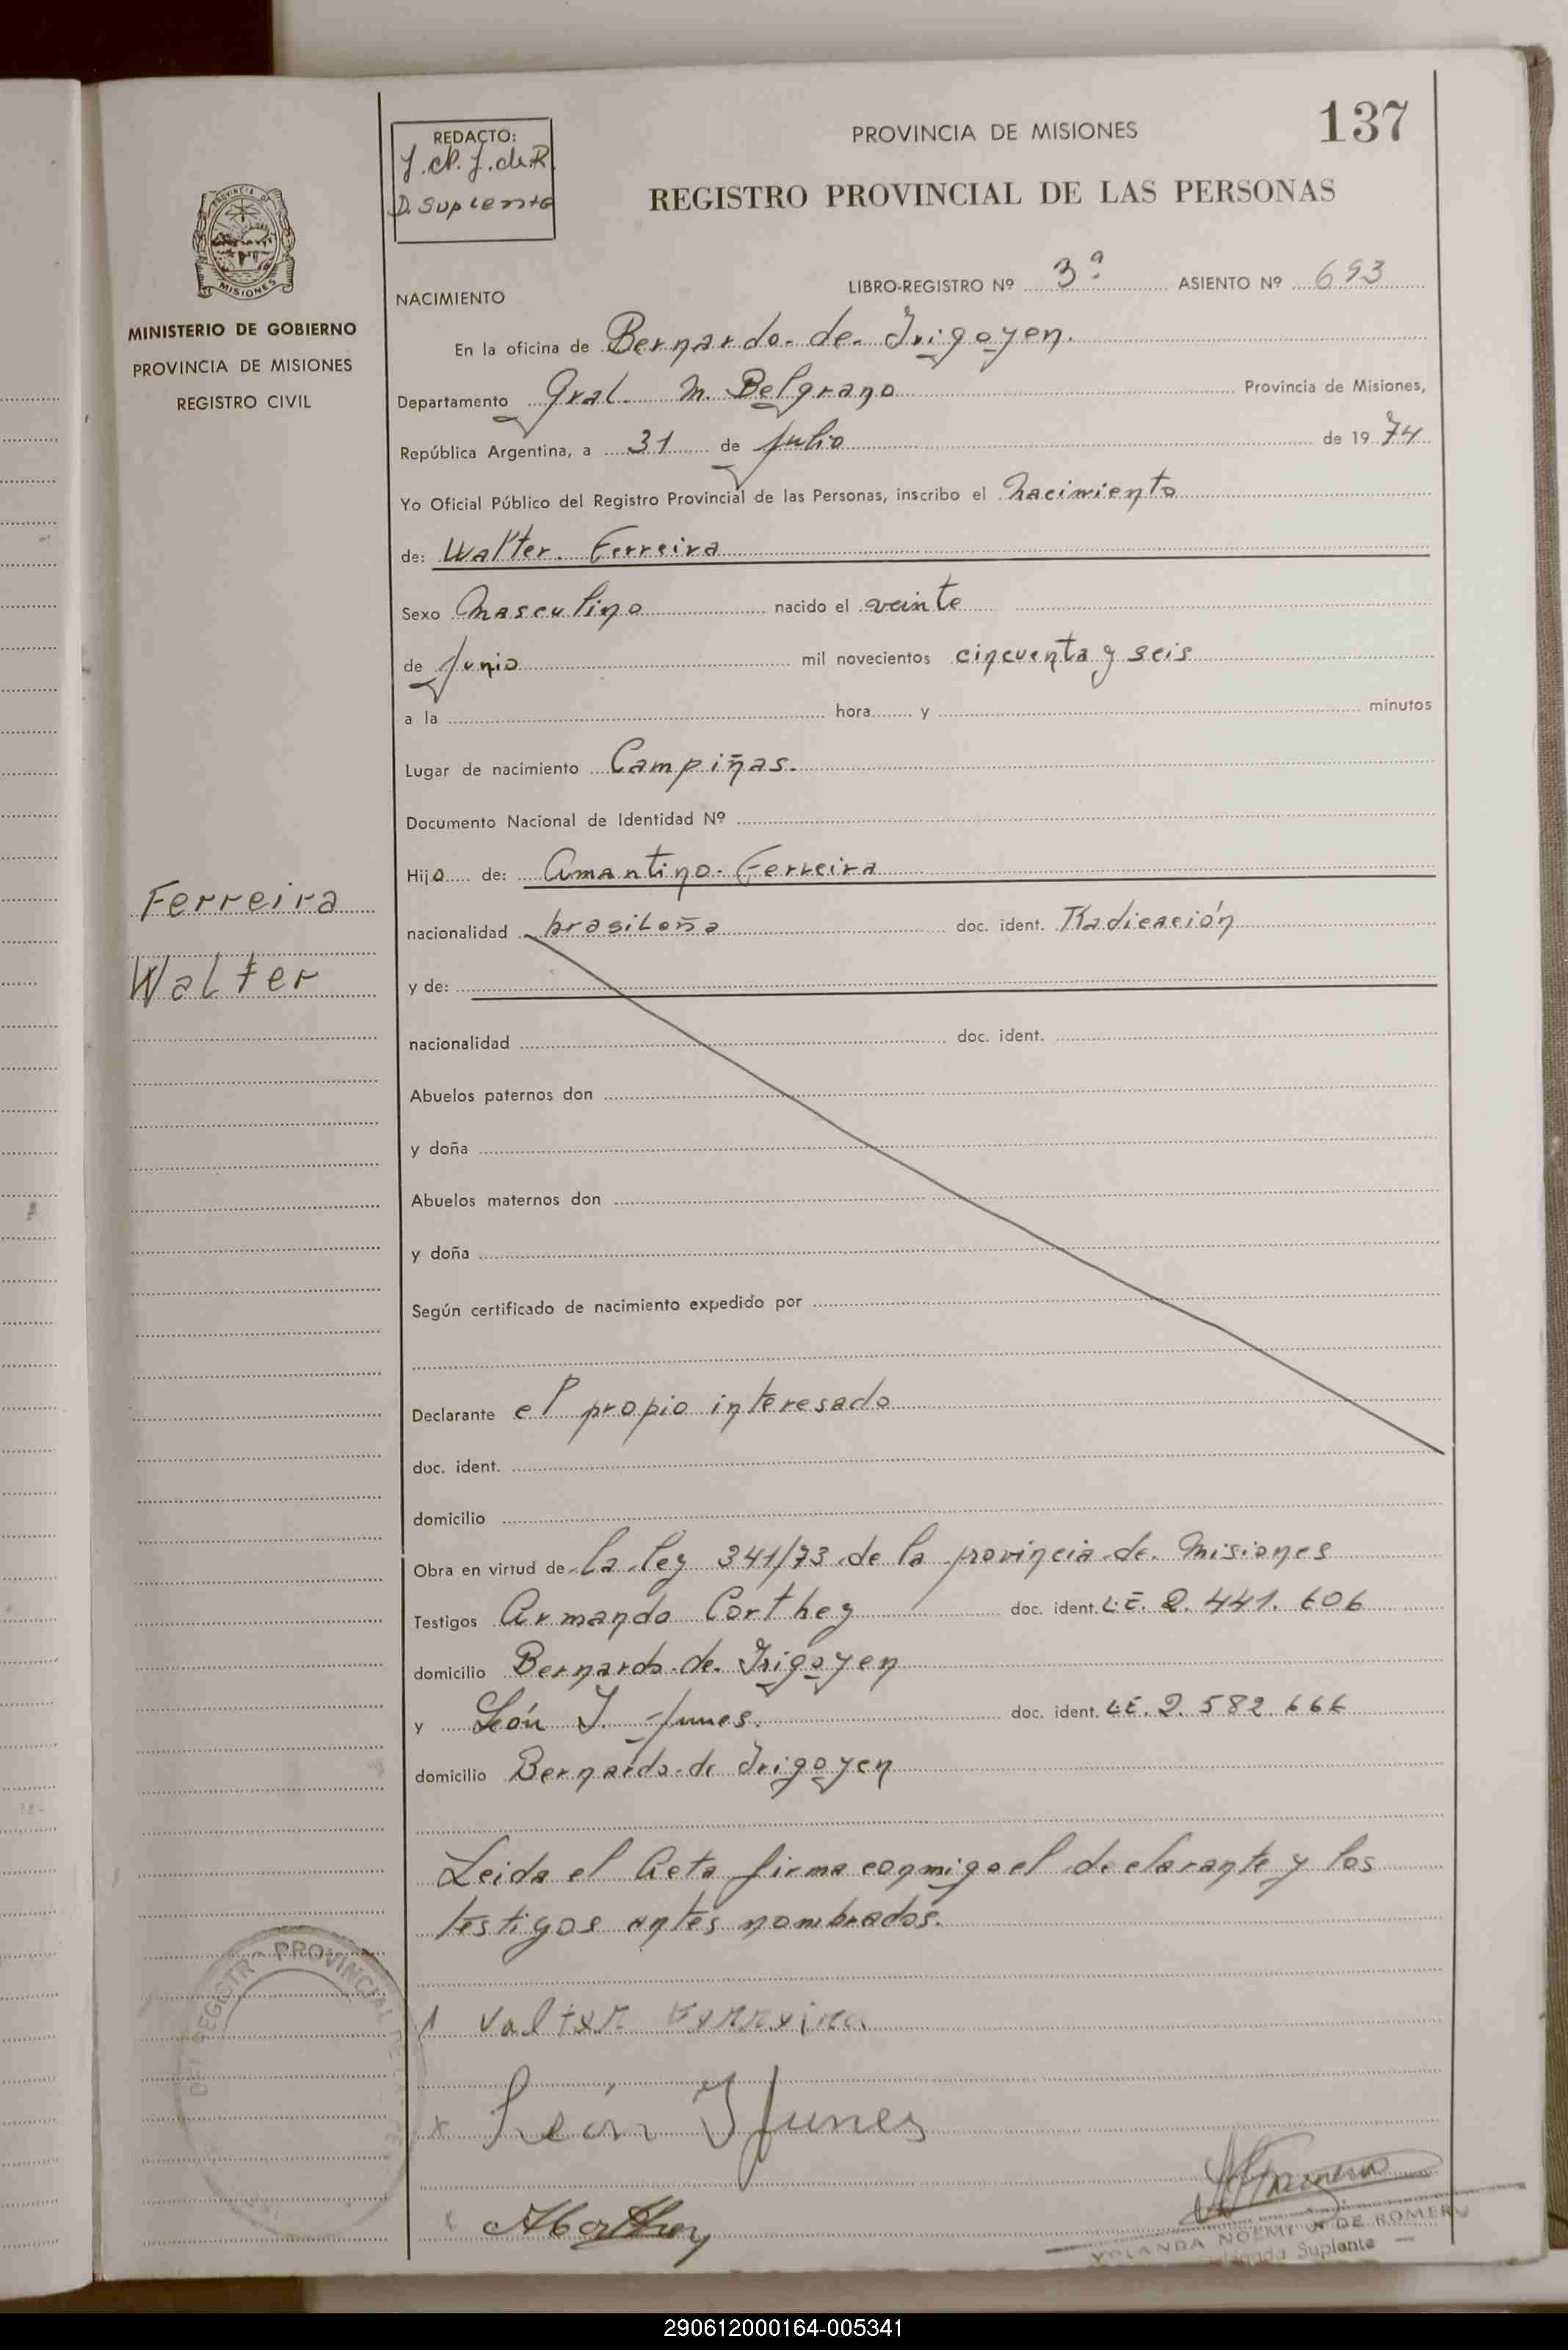 137
REDACTO:
Y. N. J. de R.
D. Suplente
PROVINCIA DE MISIONES
REGISTRO PROVINCIAL DE LAS PERSONAS
PROVINCIA
MISIONES
MINISTERIO DE GOBIERNO
PROVINCIA DE MISIONES
REGISTRO CIVIL
LIBRO-REGISTRO Nº 3º ASIENTO Nº 693
NACIMIENTO
En la oficina de Bernardo de Irigoyen.
Departamento Gral. M. Belgrano Provincia de Misiones,
República Argentina, a 31 de Julio de 1974
Yo Oficial Público del Registro Provincial de las Personas, inscribo el nacimiento
de: Walter Ferreira
Sexo Masculino nacido el veinte
de Junio mil novecientos cincuenta y seis
a la hora y minutos
Lugar de nacimiento Campiñas.
Documento Nacional de Identidad Nº
Hijo de: Amantino Ferreira
Ferreira
Walter
nacionalidad brasileña doc. ident. Radicación
y de:
nacionalidad doc. ident.
Abuelos paternos don
y doña
Abuelos maternos don
y doña
Según certificado de nacimiento expedido por
Declarante el propio interesado
doc. ident.
domicilio
Obra en virtud de la ley 341/73 de la provincia de Misiones
Testigos Armando Corthey doc. ident. L.E. 2.441.606
domicilio Bernardo de Irigoyen
y León I. Junes. doc. ident. L.E. 2.582.666
domicilio Bernardo de Irigoyen
Leida el Acta firma conmigo el declarante y los
testigos antes nombrados.
Valter Ferreira
x León I Junes
ACorthey
DEL REGISTRO PROVINCIAL DE LAS PER
YOLANDA NOEMI DE ROMERO
Suplente
290612000164-005341